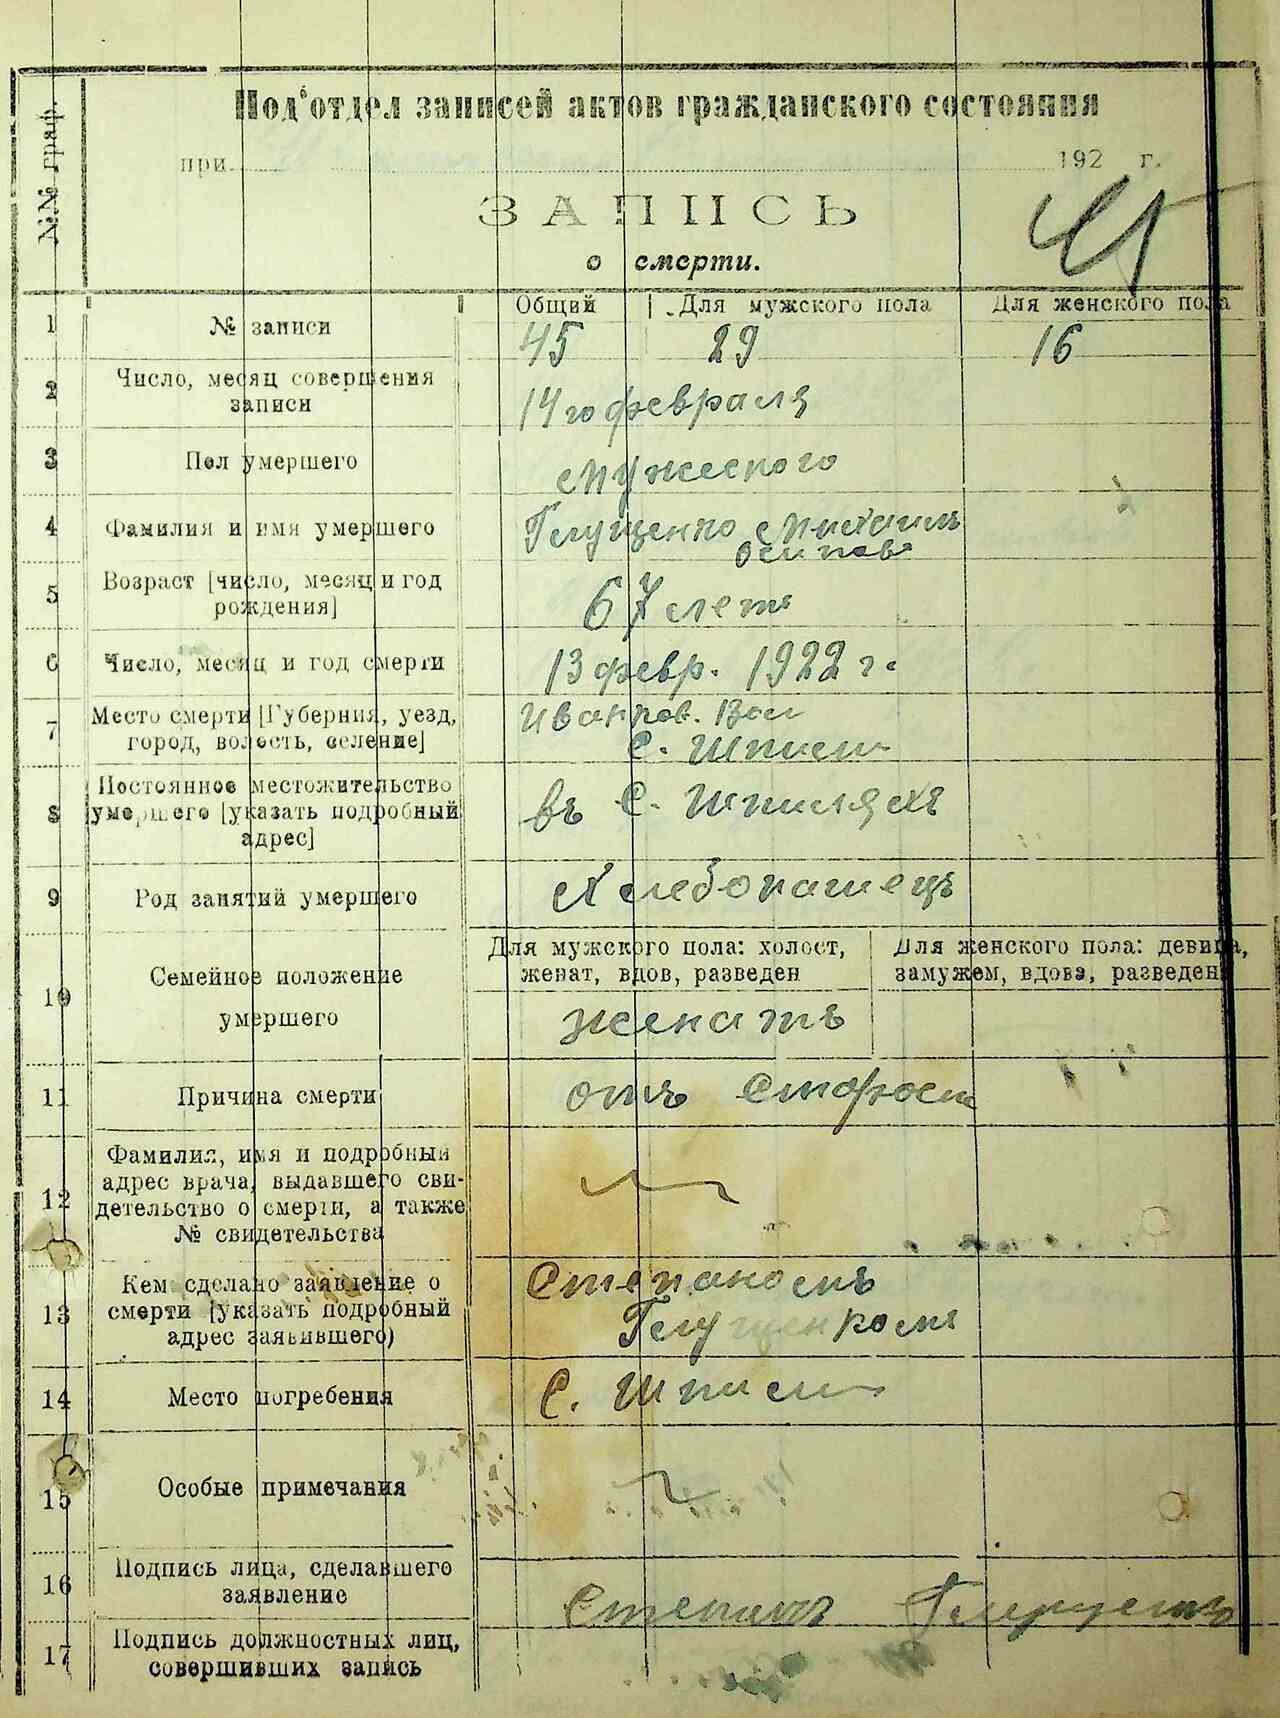 №№ граф.
Под'отдел записей актов гражданского состояния
при 192 г.
ЗАПИСЬ
о смерти.
45
1
№ записи
Общий
Для мужского пола
Для женского пола
45
29
16
2
Число, месяц совершения
записи
14 го февраля
3
Пол умершего
мужеского
4
Фамилия и имя умершего
Глущенко Михаилъ
Осипов
5
Возраст [число, месяц и год
рождения]
67 летъ
6
Число, месяц и год смерти
13 февр. 1922 г.
7
Место смерти [Губерния, уезд,
город, волость, селение]
Иванков. Вол
С. Шпили
8
Постоянное местожительство
умершего [указать подробный
адрес]
въ С. Шпиляхъ
9
Род занятий умершего
Хлебопашецъ
10
Семейное положение
умершего
Для мужского пола: холост,
женат, вдов, разведен
Для женского пола: девица,
замужем, вдова, разведена
женатъ
11
Причина смерти
отъ Старости
12
Фамилия, имя и подробный
адрес врача, выдавшего сви-
детельство о смерти, а также
№ свидетельства
13
Кем сделано заявление о
смерти [указать подробный
адрес заявившего)
Степаномъ
Глущенкомъ
14
Место погребения
С. Шпили
15
Особые примечания
16
Подпись лица, сделавшего
заявление
Степанъ
17
Подпись должностных лиц,
совершивших запись